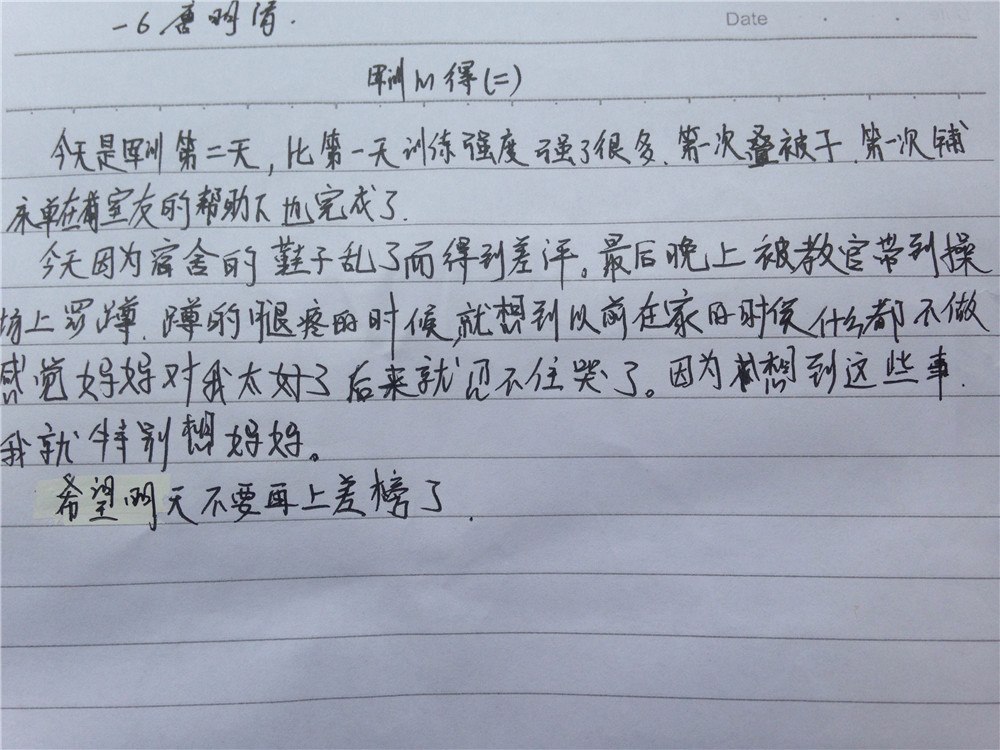 -6 唐明清.
Date
军训心得(二)
今天是军训第二天,比第一天训练强度强了很多.第一次叠被子.第一次铺
床单在有室友的帮助下也完成了.
今天因为宿舍的鞋子乱了而得到差评。最后晚上被教官带到操
场上罚蹲.蹲的腿疼的时候,就想到以前在家的时候什么都不做
感觉妈妈对我太好了后来就忍不住哭了。因为想到这些事.
我就特别想妈妈。
希望明天不要再上差榜了.